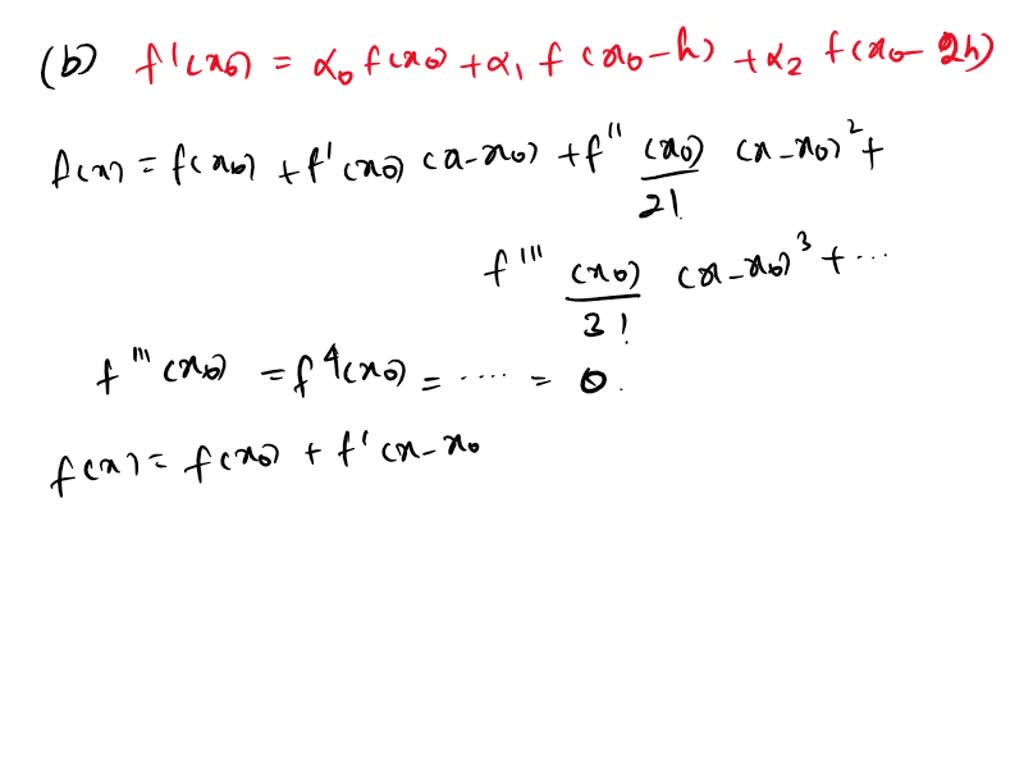 (b) f'(x₀) = α₀ f(x₀) + α₁ f(x₀-h) + α₂ f(x₀-2h)
f(x) = f(x₀) + f'(x₀) (x-x₀) + f'' (x₀)/2! (x-x₀)² +
f''' (x₀)/3! (x-x₀)³ + ...
f'''(x₀) = f⁴(x₀) = .... = 0.
f(x) = f(x₀) + f'(x-x₀